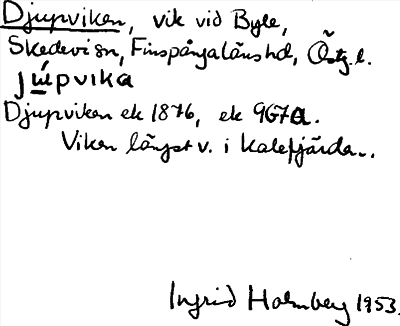 Djupviken, vik vid Byle,
Skedevi sn, Finspångalänshd, Östg.l.
júpvika
Djupviken ek 1876, ek 9G7a.
Viken längst v. i Kalefjärden.
Ingrid Holmberg 1953.